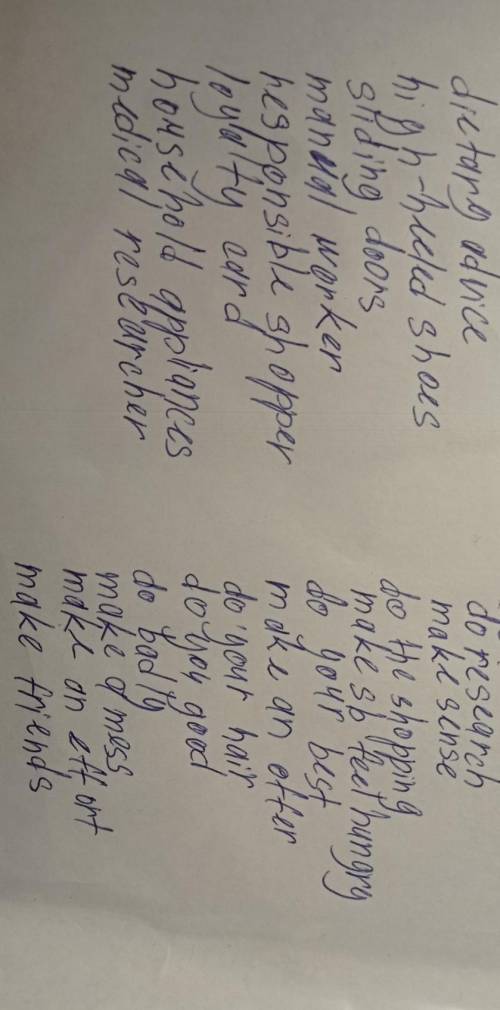 dietary advice
high-heeled shoes
sliding doors
manual worker
responsible shopper
loyalty card
household appliances
medical researcher
do research
make sense
do the shopping
make sb feel hungry
do your best
make an offer
do your hair
do you good
do badly
make a mess
make an effort
make friends